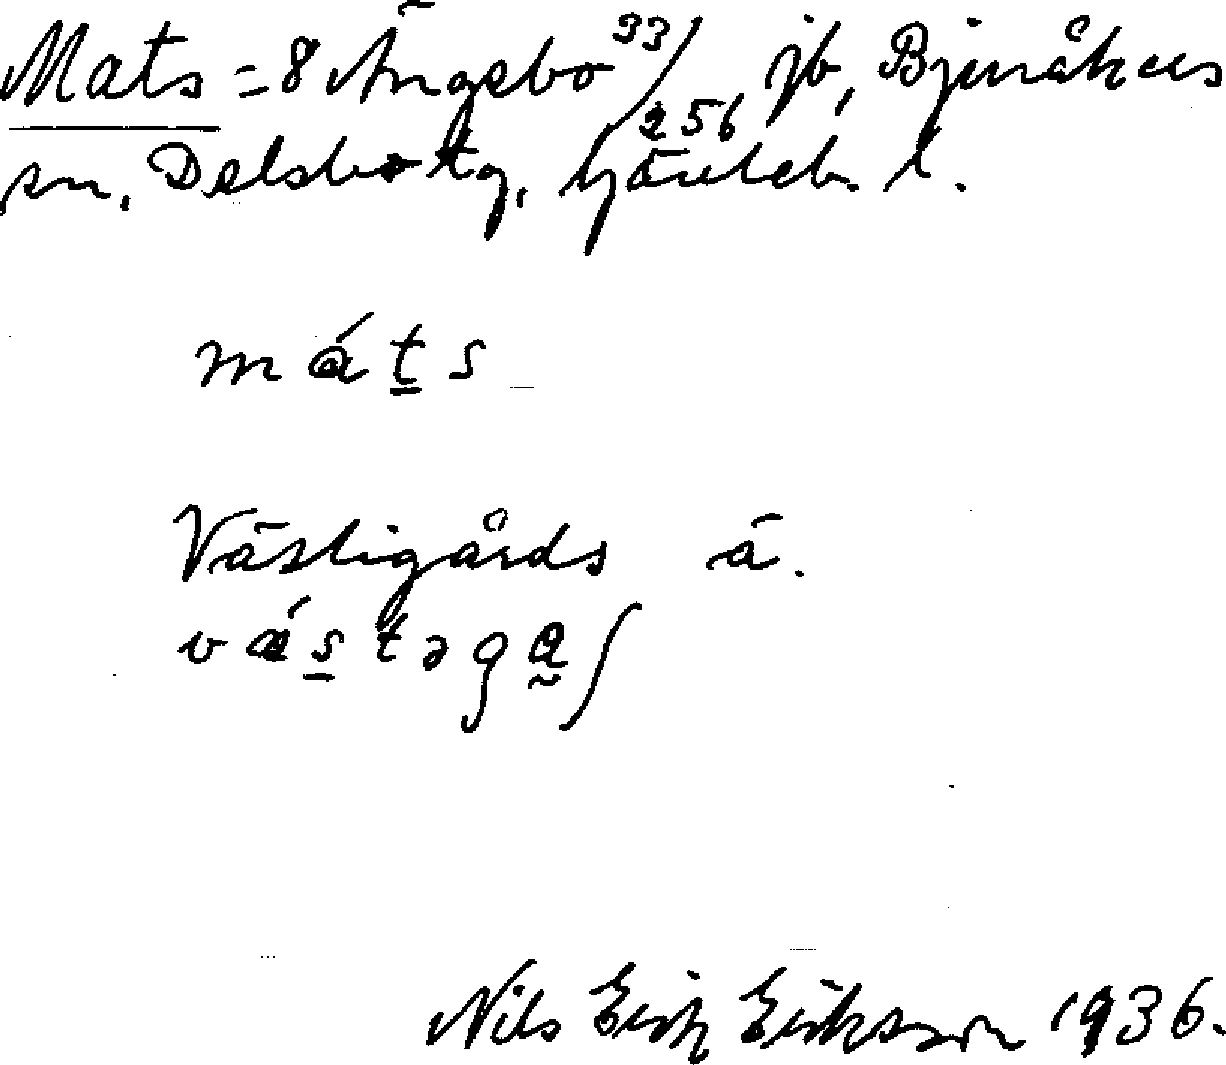 Mats = 8 Ängebo 33/256 jb, Bjuråkers
sn, Delsbo tg, Gävleb. l.
mát̲s
Västigårds ä.
vǽs̲təga̰ʃ
Nils Erik Eriksson 1936.